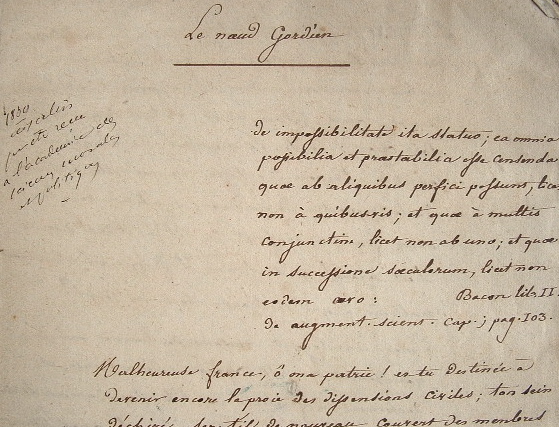 Le nœud Gordien
1830
à l'académie des
sciences morales
et politiques
de impossibilitate ita statuo; ea omnia
possibilia et præstabilia esse censenda
quæ ab aliquibus perfici possunt, lice
non à quibusvis; et quæ à multis
conjunctim, licet non ab uno; et quæ
in successione sæculorum, licet non
eodem ævo: Bacon lib. II
de augment. scient. Cap. ; pag. 103.
Malheureuse france, ô ma patrie! es tu destinée à
devenir encore la proie des dissensions civiles; ton sein
déchiré, de nouveau couvert des membres